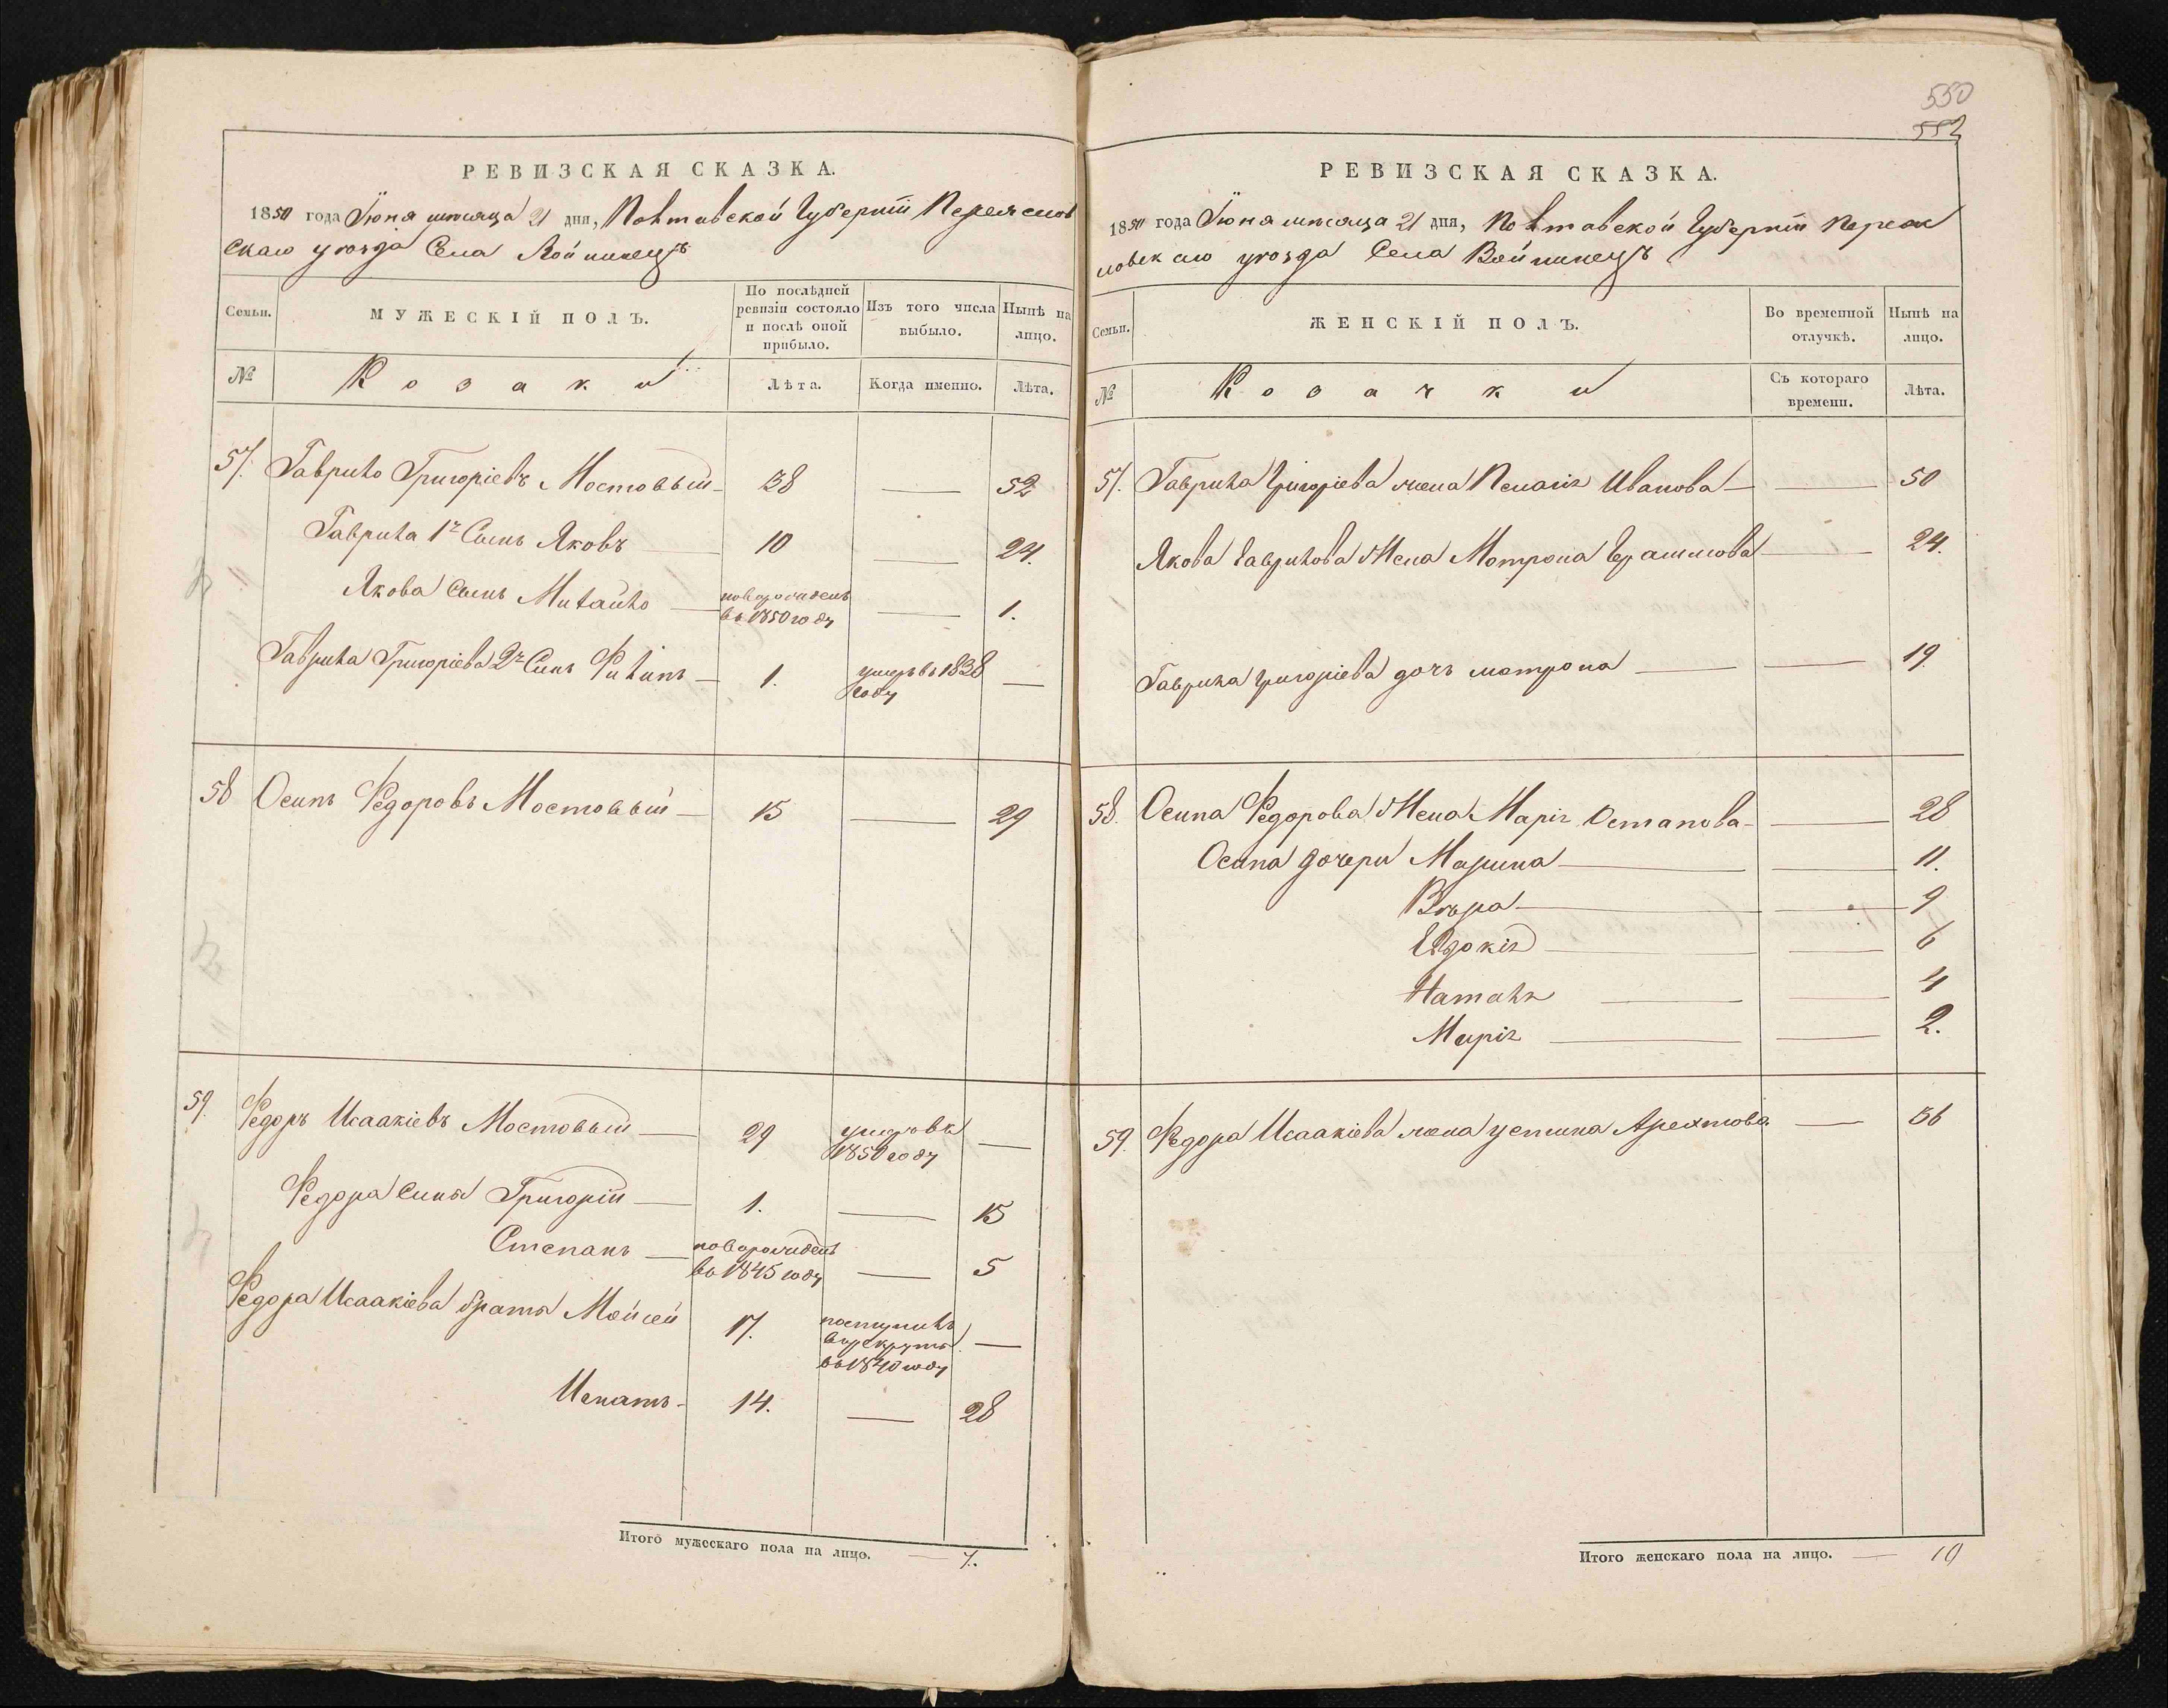 РЕВИЗСКАЯ СКАЗКА.
1850 года Іюня мѣсяца 21 дня, Полтавской Губерніи Переяслов
скаго уѣзда Села Войнинецъ
Семьи. МУЖЕСКІЙ ПОЛЪ. По послѣдней ревизіи состояло и послѣ оной прибыло. Изъ того числа выбыло. Нынѣ на лицо.
№ Козаки Лѣта. Когда именно. Лѣта.
57. Гаврило Григоріевъ Мостовый — 38 — 52
Гаврила 1й Сынъ Яковъ — 10 — 24.
Якова Сынъ Михайло — новорожденъ въ 1850 году — 1.
Гаврила Григоріева 2й Сынъ Филипъ — 1. умеръ въ 1838 году —
58 Осипъ Федоровъ Мостовый — 15 — 29
59 Федоръ Исаакіевъ Мостовый — 29 умеръ въ 1850 году —
Федора Сынъя Григорій — 1. — 15
Степанъ — новорожденъ въ 1845 году — 5
Федора Исаакіева братья Мойсей 17. поступилъ въ рекруты въ 1840 году —
Игнатъ - 14. — 28
Итого мужескаго пола на лицо. — 7.
550
552
РЕВИЗСКАЯ СКАЗКА.
1850 года Іюня мѣсяца 21 дня, Полтавской Губерніи Переяс
ловскаго уѣзда Села Войнинецъ
Семьи. ЖЕНСКІЙ ПОЛЪ. Во временной отлучкѣ. Нынѣ на лицо.
№ Козачки Съ котораго времени. Лѣта.
57. Гаврила Григоріева жена Пелагія Иванова — — 50
Якова Гаврилова Жена Мотрона Герасимова — 24.
Гаврила Григоріева дочь мотрона — — 19.
58. Осипа Федорова Жена Марія Остапова — — 28
Осипа дочери Марина — — 11.
Вѣра — — 9
Евдокія — — 6
Наталія — — 4
Марія — — 2.
59. Федора Исаакіева жена устина — 36
Итого женскаго пола на лицо. — 10